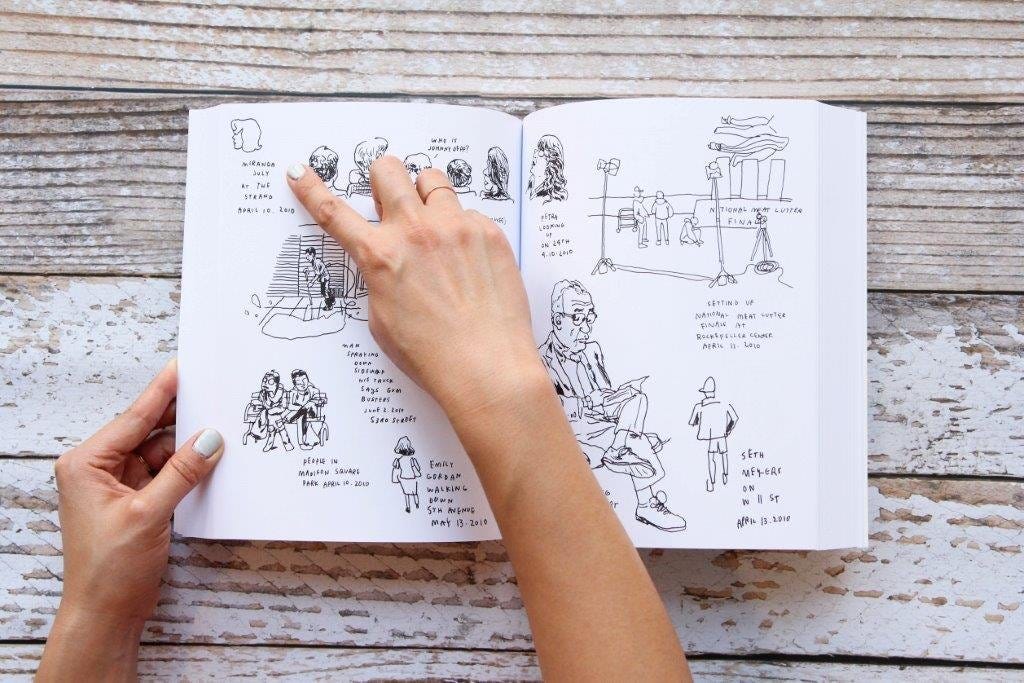 MIRANDA
JULY
AT THE
STRAND
APRIL 10. 2010
WHO IS
JOHNNY DEPP?
MAN
SPRAYING
DOWN
SIDEWALK
HIS TRUCK
SAYS GUM
BUSTERS
JUNE 2. 2010
53RD STREET
PEOPLE IN
MADISON SQUARE
PARK APRIL 10. 2010
EMILY
GORDAN
WALKING
DOWN
5TH AVENUE
MAY 13. 2010
PETRA
LOOKING
UP
ON 29TH
4.10.2010
NATIONAL MEAT CUTTER
FINA
SETTING UP
NATIONAL MEAT CUTTER
FINALE AT
ROCKEFELLER CENTER
APRIL 13. 2010
SETH
MEYERS
ON
W 11 ST
APRIL 13. 2010